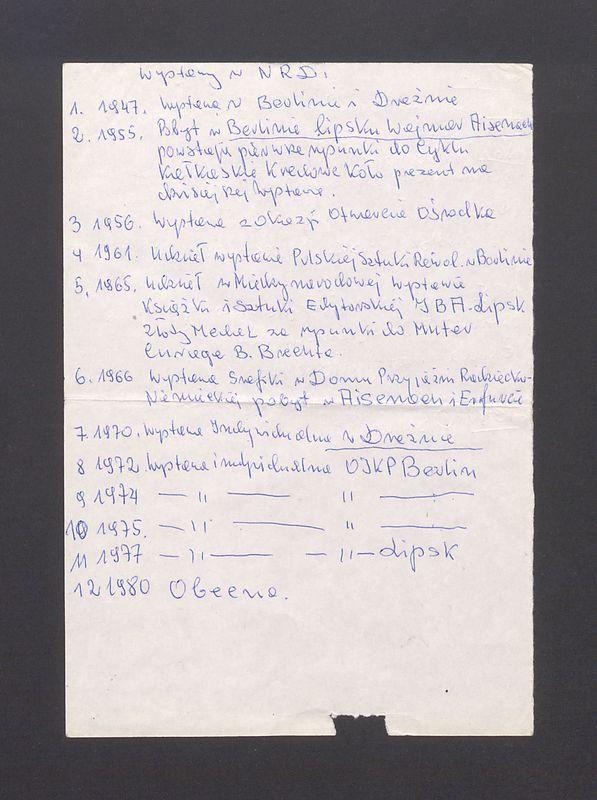 Wystawy w NRD.
1. 1947. Wystawa w Berlinie i Dreźnie
2. 1955. Pobyt w Berlinie Lipsku Wajmar Aisenach
powstają pierwsze rysunki do Cyklu
Kaukaskie Kredowe Koło prezent na
dzisiejszej Wystawie.
3 1956. Wystawa z okazji Otwarcia Ośrodka
4 1961. Udział wystawie Polskiej Sztuki Rewol. w Berlinie
5. 1965. Udział w Międzynarodowej Wystawie
Książki i Sztuki Edytorskiej IBA-Lipsk
Złoty Medal za rysunki do Muter
Curage B. Brechta.
6. 1966 Wystawa Grafiki w Domu Przyjaźni Radziecko-
Niemieckiej pobyt w Aisenach i Erfurcie
7 1970. Wystawa Indywidualna w Dreźnie
8 1972 Wystawa indywidualna OIKP Berlin
9 1974 — " — " —
10 1975. — " — " —
11 1977 — " — — " — Lipsk
12 1980 Obecna.